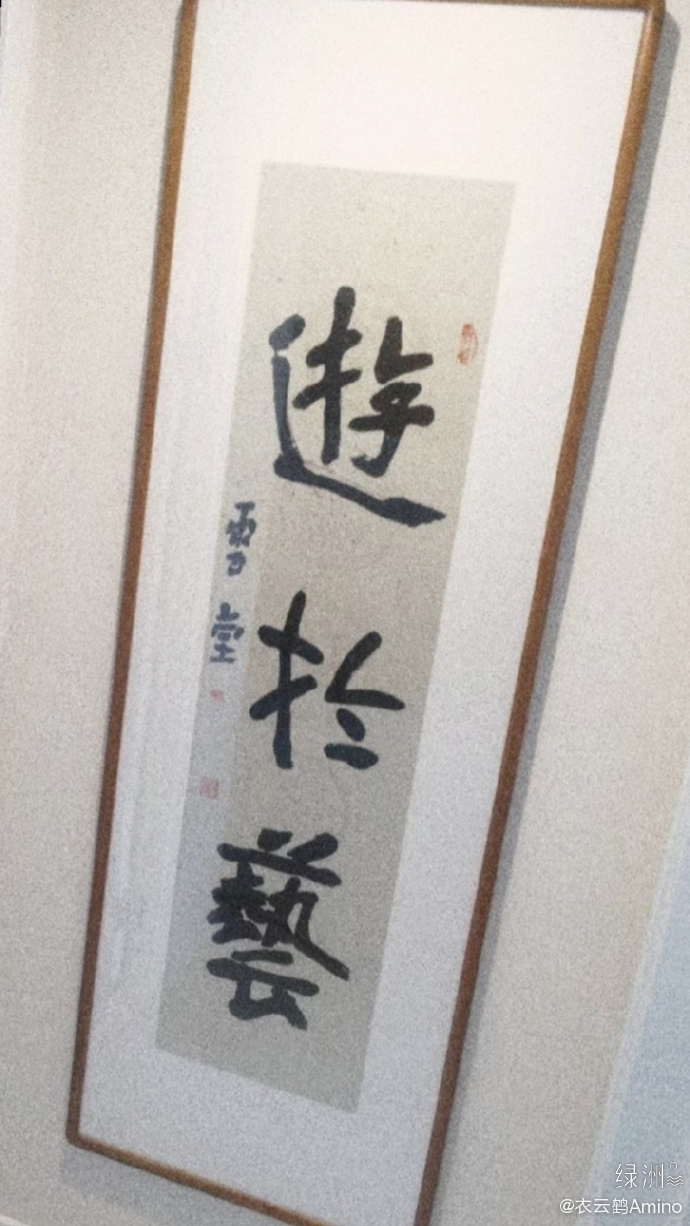 遊於藝
绿洲
@衣云鹤Amino